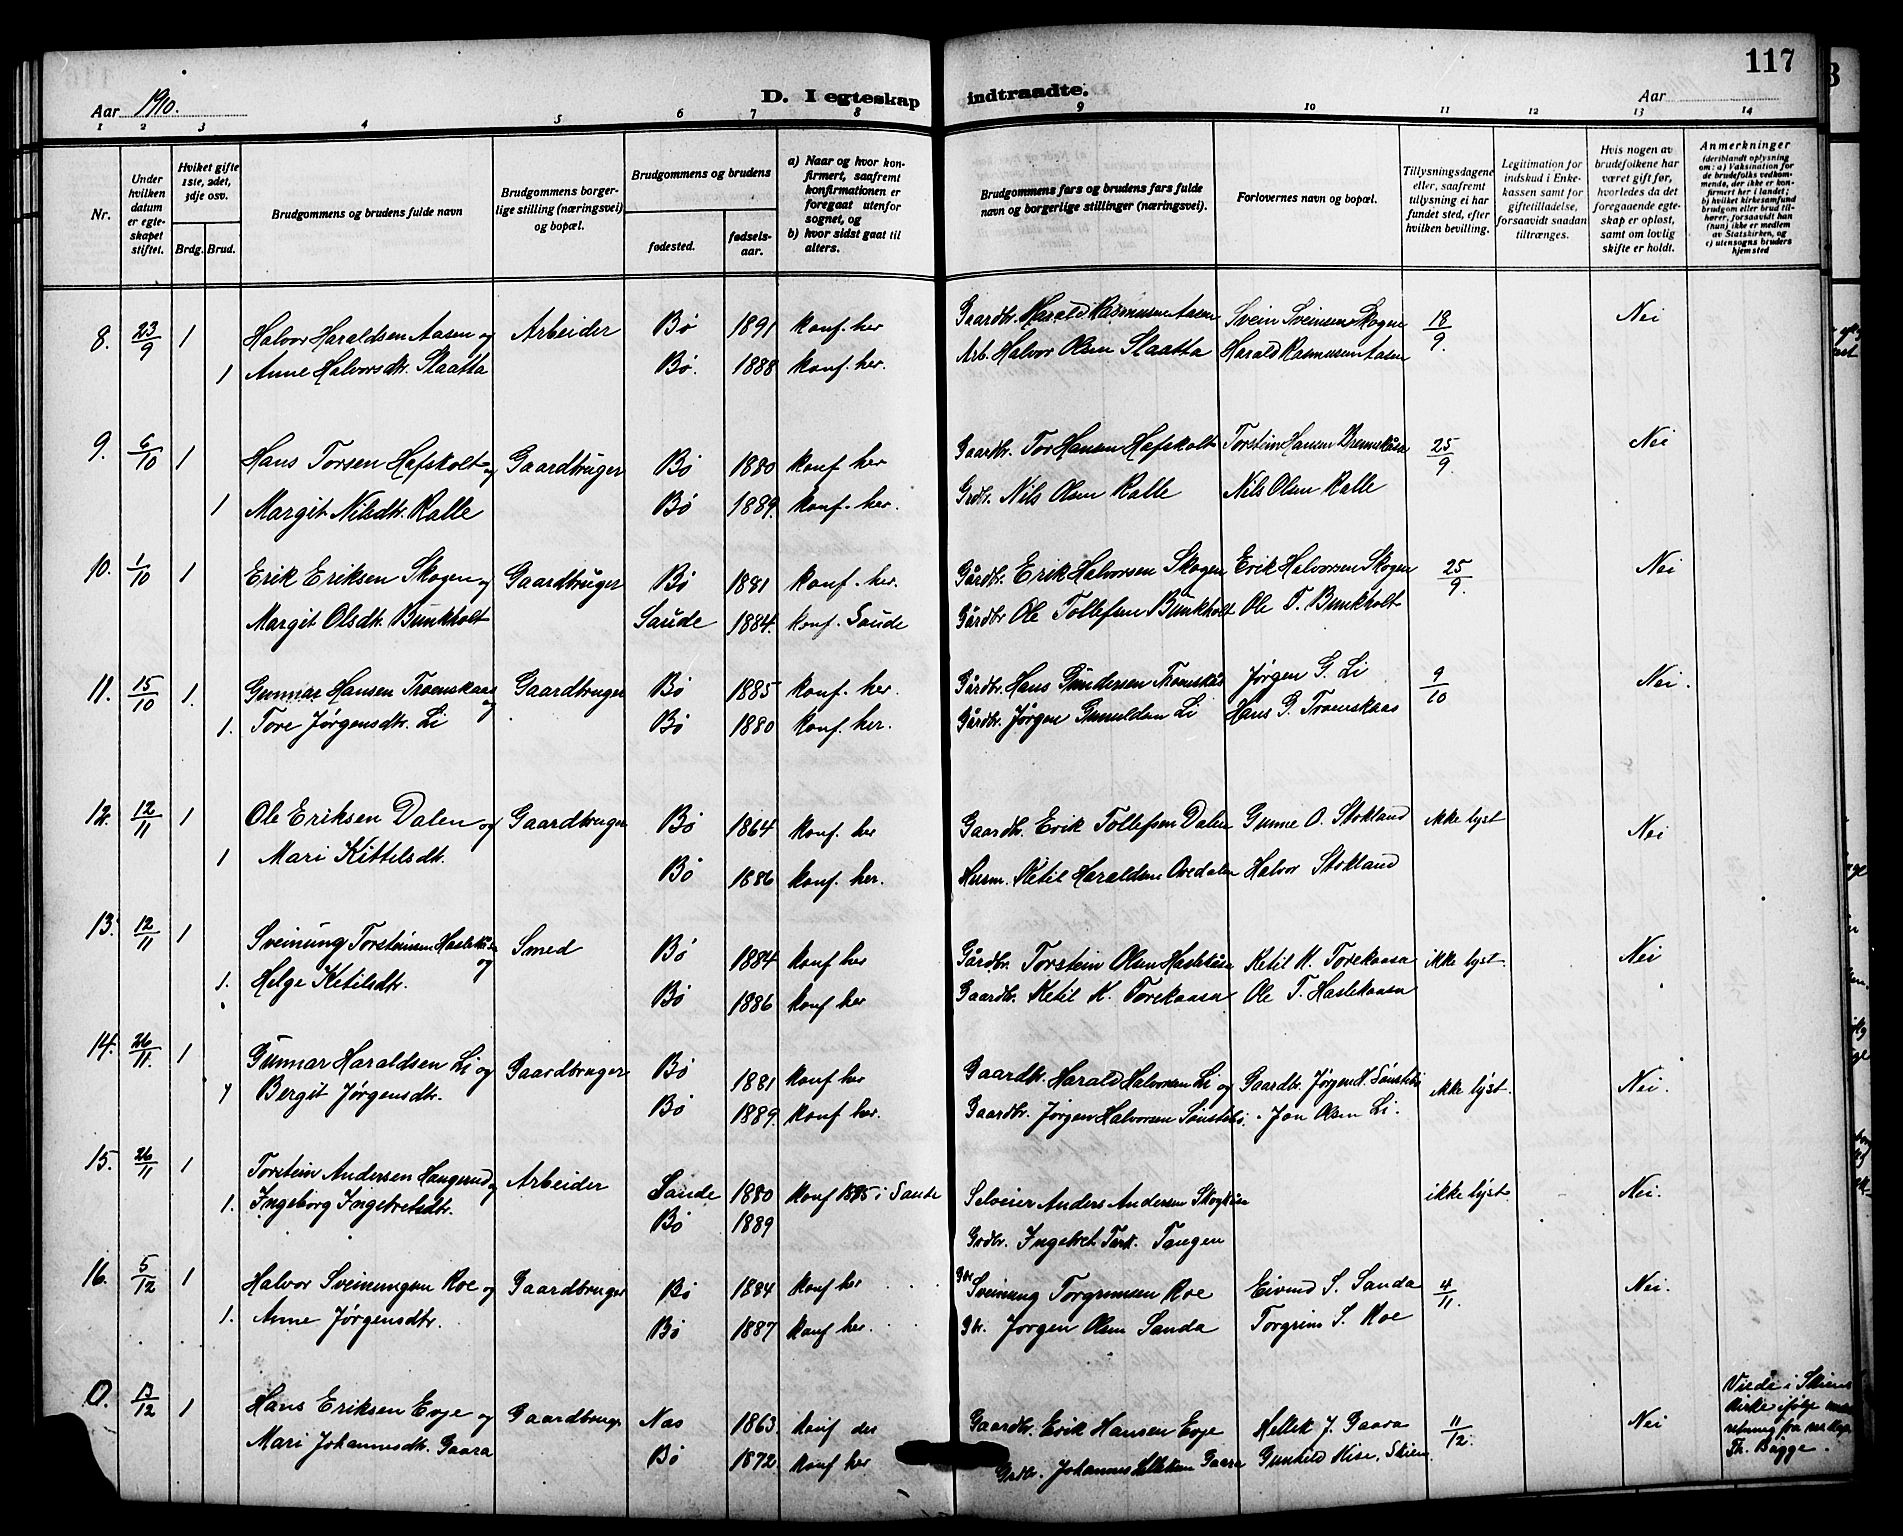 117
Aar 1910.
D. I egteskap indtraadte.
Aar
1 2 3 4 5 6 7 8 9 10 11 12 13 14
Nr.
Under hvilken datum er egteskapet stiftet.
Hvilket gifte 1ste, 2det, 3dje osv.
Brdg. Brud.
Brudgommens og brudens fulde navn
Brudgommens borgerlige stilling (næringsvei) og bopæl.
Brudgommens og brudens
fødested.
fødselsaar.
a) Naar og hvor konfirmert, saafremt konfirmationen er foregaat utenfor sognet, og
b) hvor sidst gaat til alters.
Brudgommens fars og brudens fars fulde navn og borgerlige stillinger (næringsvei).
Forlovernes navn og bopæl.
Tillysningsdagene eller, saafremt tillysning ei har fundet sted, efter hvilken bevilling.
Legitimation for indskud i Enkekassen samt for giftetilladelse, forsaavidt saadan tiltrænges.
Hvis nogen av brudefolkene har været gift før, hvorledes da det foregaaende egteskap er opløst, samt om lovlig skifte er holdt.
Anmerkninger
(deriblandt oplysning om: a) Vaksination for de brudefolks vedkommende, der ikke er konfirmert her i landet; b) hvilket kirkesamfund brudgom eller brud tilhører, forsaavidt han (hun) ikke er medlem av Statskirken, og c) utensogns bruders hjemsted
8. 23/9 1 Halvor Haraldsen Aasen og Arbeider Bø 1891 konf. her Gaardbr. Harald Rasmussen Aasen Svein Sveinsen Skogen 18/9. Nei
1 Anne Halvorsdtr. Slaatta Bø. 1888 konf. her. Arb. Halvor Olsen Slaatta Harald Rasmussen Aasen
9. 6/10 1 Hans Torsen Hafskolt og Gaardbruger Bø 1880 konf her Gaardbr. Tor Hansen Hafskolt Torstein Hansen 25/9. Nei
1 Margit Nilsdtr. Kalle Bø 1889. konf. her. Grdbr. Nils Olsen Kalle Nils Olsen Kalle
10. 1/10 1 Erik Eriksen Skogen og Gaardbruger Bø 1881 konf. her. Gårdbr. Erik Halvorsen Skogen Erik Halvorsen Skogen 25/9. Nei
Margit Olsdtr. Bunkholt Saude 1884. konf. Saude Gårdbr Ole Tollefsen Bunkholt Ole T. Bunkholt
11. 15/10 1. Gunnar Hansen Tronskaas og Gaardbruger Bø 1885 konf. her. Gårdbr. Hans Gundersen Jørgen G. Li 9/10 Nei.
1. Tore Jørgensdtr. Li Bø 1880 konf. her. Gårdbr. Jørgen Gunuldsen Li Hans G. Tronskaas
12. 12/11 1 Ole Eriksen Dalen og Gaardbruger Bø 1864 konf. her Gaardb. Erik Tollefsen Dalen Gunne O. Stokland ikke lyst Nei
1 Mari Kittelsdtr. Bø 1886 konf. her. Husm. Ketil Haraldsen Ovedalen Halvor Stokland
13. 12/11 1 Sveinung Torsteinsen og Smed Bø 1884 konf her Gårdbr. Torstein Olsen Ketil K. Torekaasa ikke lyst. Nei
1. Helge Ketilsdtr. Bø 1886 konf her Gaardbr. Ketil K. Torekaasa Ole T. Haslekaasa
14. 26/11. 1 Gunnar Haraldsen Li og Gaardbruger Bø 1881 konf her Gaardbr. Harald Halvorsen Li og Gaardbr. Jørgen H. Sønstebø ikke lyst. Nei.
1 Bergit Jørgensdtr. Bø 1889. konf her. Gaardbr. Jørgen Halvorsen Sønstebø. Jon Olsen Li.
15. 26/11 1 Torstein Andersen Haugerud og Arbeider Saude 1880 konf 1895 i Saude Selveier Anders Andersen ikke lyst. Nei.
1. Ingeborg Ingebretsdtr. Bø 1889 Grdbr. Ingebret Tangen
16. 5/12 1 Halvor Sveinungsen Roe og Gaardbruger Bø 1884 konf her Sveinung Torgrimsen Roe Eivind S. Sanda 4/11. Nei.
1. Anne Jørgensdtr. Bø 1887 konf her. Jørgen Olsen Sanda Torgrim S. Roe
0. 13/12 1 Hans Eriksen Evje og Gaardbrugr. Nas 1863. konf der Gaardbr. Erik Hansen Evje Hellek J. Gaara 11/12. Nei
Mari Johannesdtr. Gaara Bø 1872 konf her Grdbr. Johannes Helleksen Gaara Gunhild Kise, Skien.
Viede i Skiens kirke ifølge
Th. Bagge.